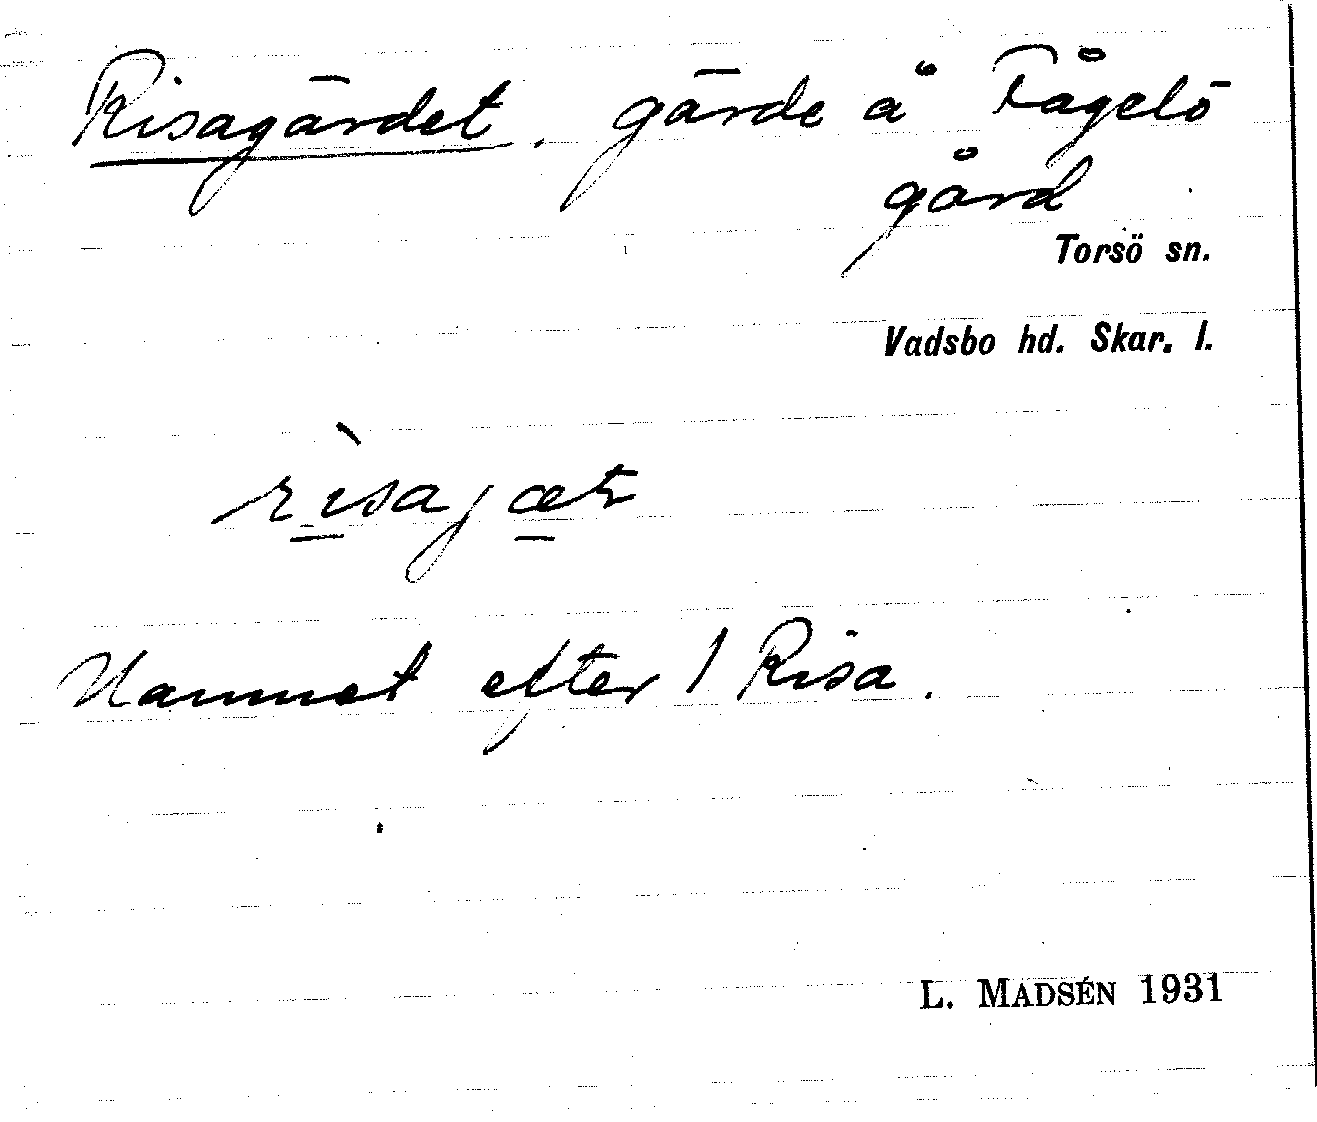 Risagärdet. gärde å Fågelö
gård
Torsö sn.
Vadsbo hd. Skar. l.
rìsajæt
Namnet efter 1 Risa.
L. MADSÉN 1931